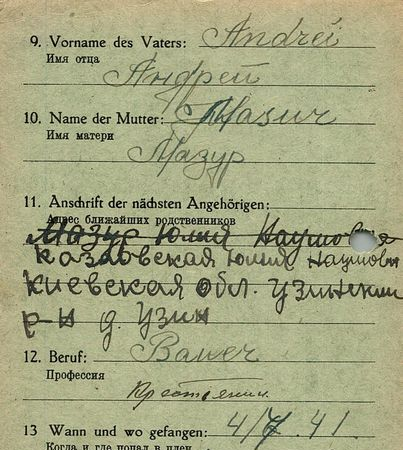 9. Vorname des Vaters: Andrei
Имя отца
Андрей
10. Name der Mutter: Masur
Имя матери
Мазур
11. Anschrift der nächsten Angehörigen:
Адрес ближайших родственников
Мазур Юлия Наумовна
Казловская Юлия Наумовн
Киевская обл. Узинский
р-н д. Узин
12. Beruf: Bauer
Профессия
Крестьянин
13 Wann und wo gefangen: 4/7.41.
Когда и где попал в плен